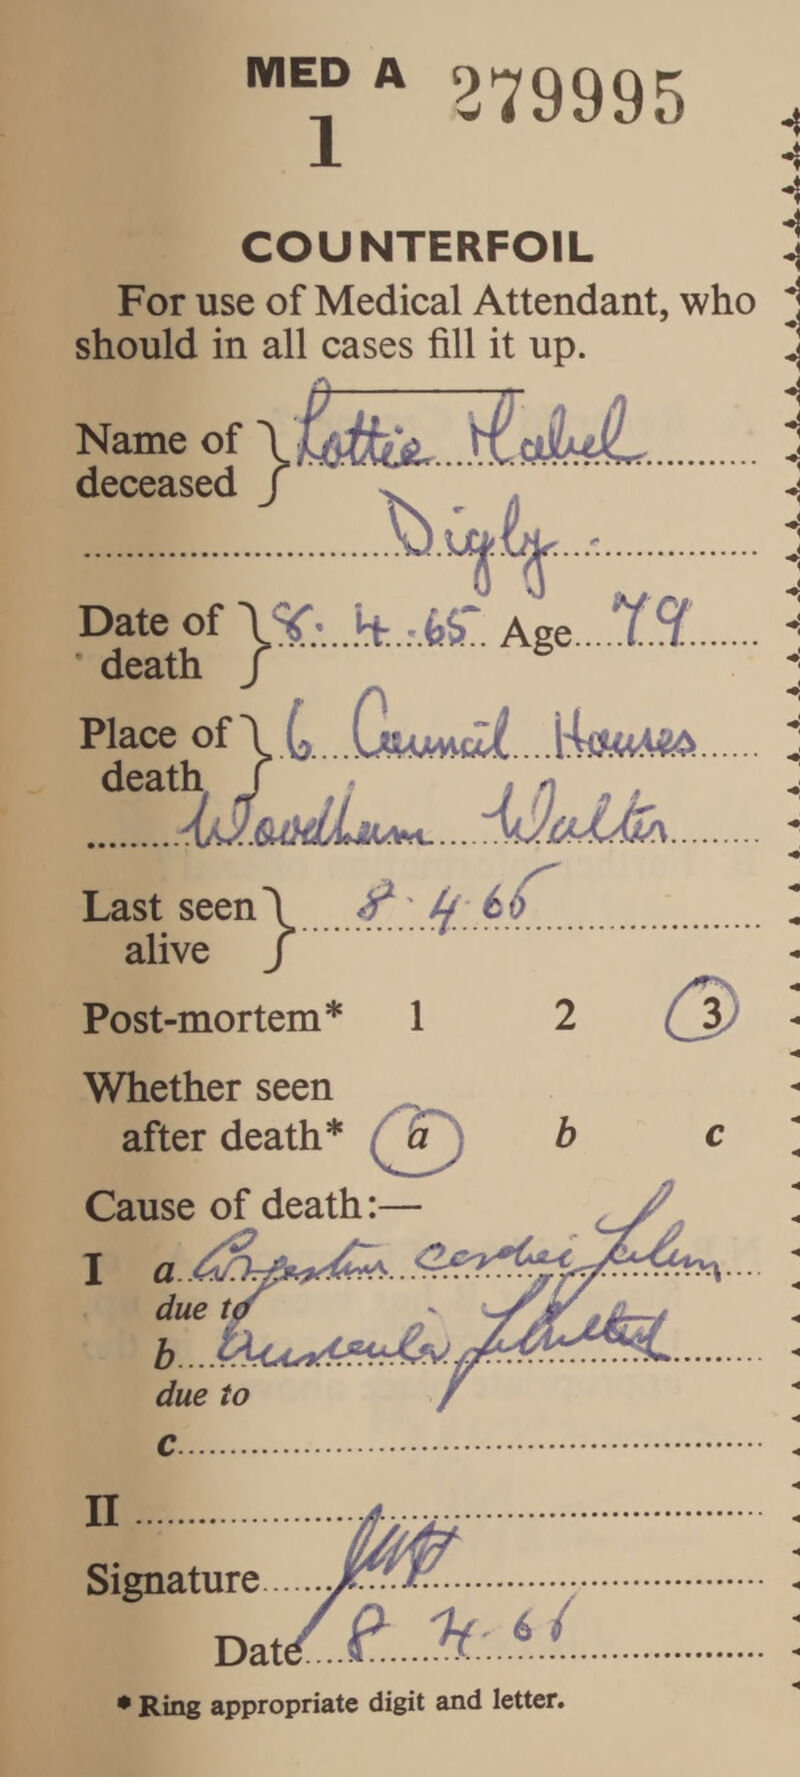 MED A 279995
1
COUNTERFOIL
For use of Medical Attendant, who
should in all cases fill it up.
Name of } Lottie Mabel
deceased
Digby
Date of } 8. 4. 65 Age 79
death
Place of } 6 Council Houses
death
Woodham Walter
Last seen } 8 4 65
alive
Post-mortem* 1 2 3
Whether seen
after death* a b c
Cause of death:—
I a Congestive cardiac failure
due to
b Auricular fibrillation
due to
c
II
Signature
Date 8 4. 65
* Ring appropriate digit and letter.